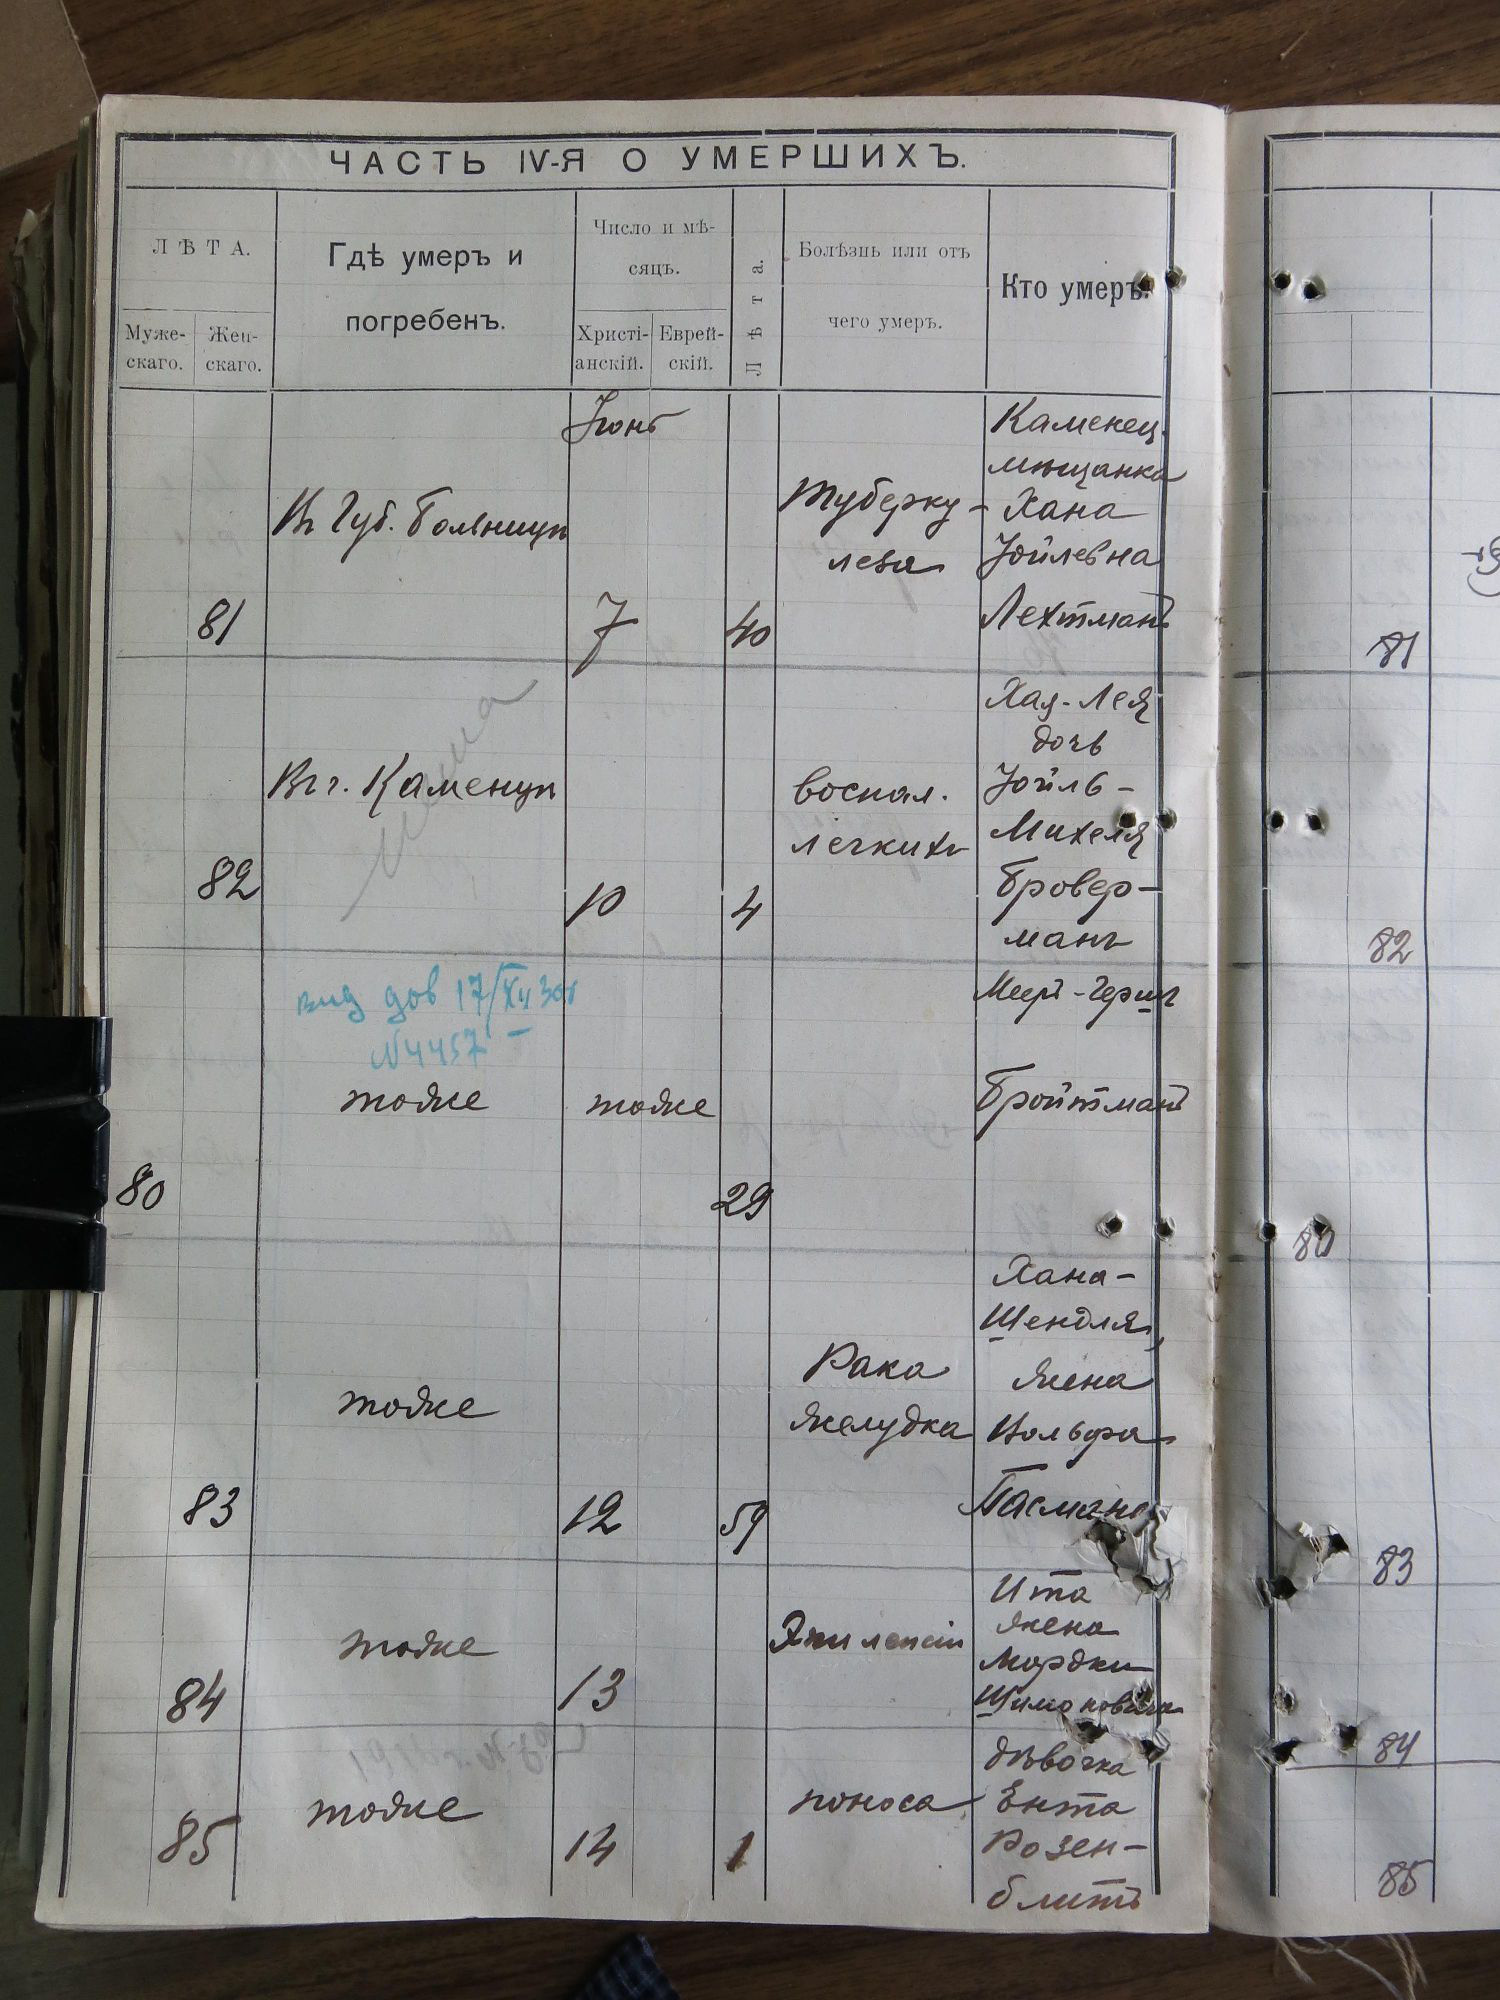 ЧАСТЬ IV-Я О УМЕРШИХЪ.
ЛѢТА.
Муже-
скаго.
Жен-
скаго.
Гдѣ умеръ и
погребенъ.
Число и мѣ-
сяцъ.
Христі-
анскій.
Еврей-
скій.
Лѣта.
Болѣзнь или отъ
чего умеръ.
Кто умеръ.
Іюнь
81
Въ Губ. Больницѣ
7
40
Туберку-
леза
Каменец.
мѣщанка
Хана
Іойлевна
Лехтманъ
81
82
Въ г. Каменцѣ
10
4
воспал.
легкихъ
Хая-Лея
дочь
Іойль-
Михеля
Бровер-
манъ
82
дов 17/XII 30г
N4457
80
тоже
тоже
29
Меер-Герш
Бройтманъ
80
83
тоже
12
59
Рака
желудка
Хана-
Шендля,
жена
Вольфа
Пасмана
83
84
тоже
13
Эпилепсіи
Ита
жена
Мордки
Шимоновича
84
85
тоже
14
1
поноса
дѣвочка
Ента
Розен-
блитъ
85